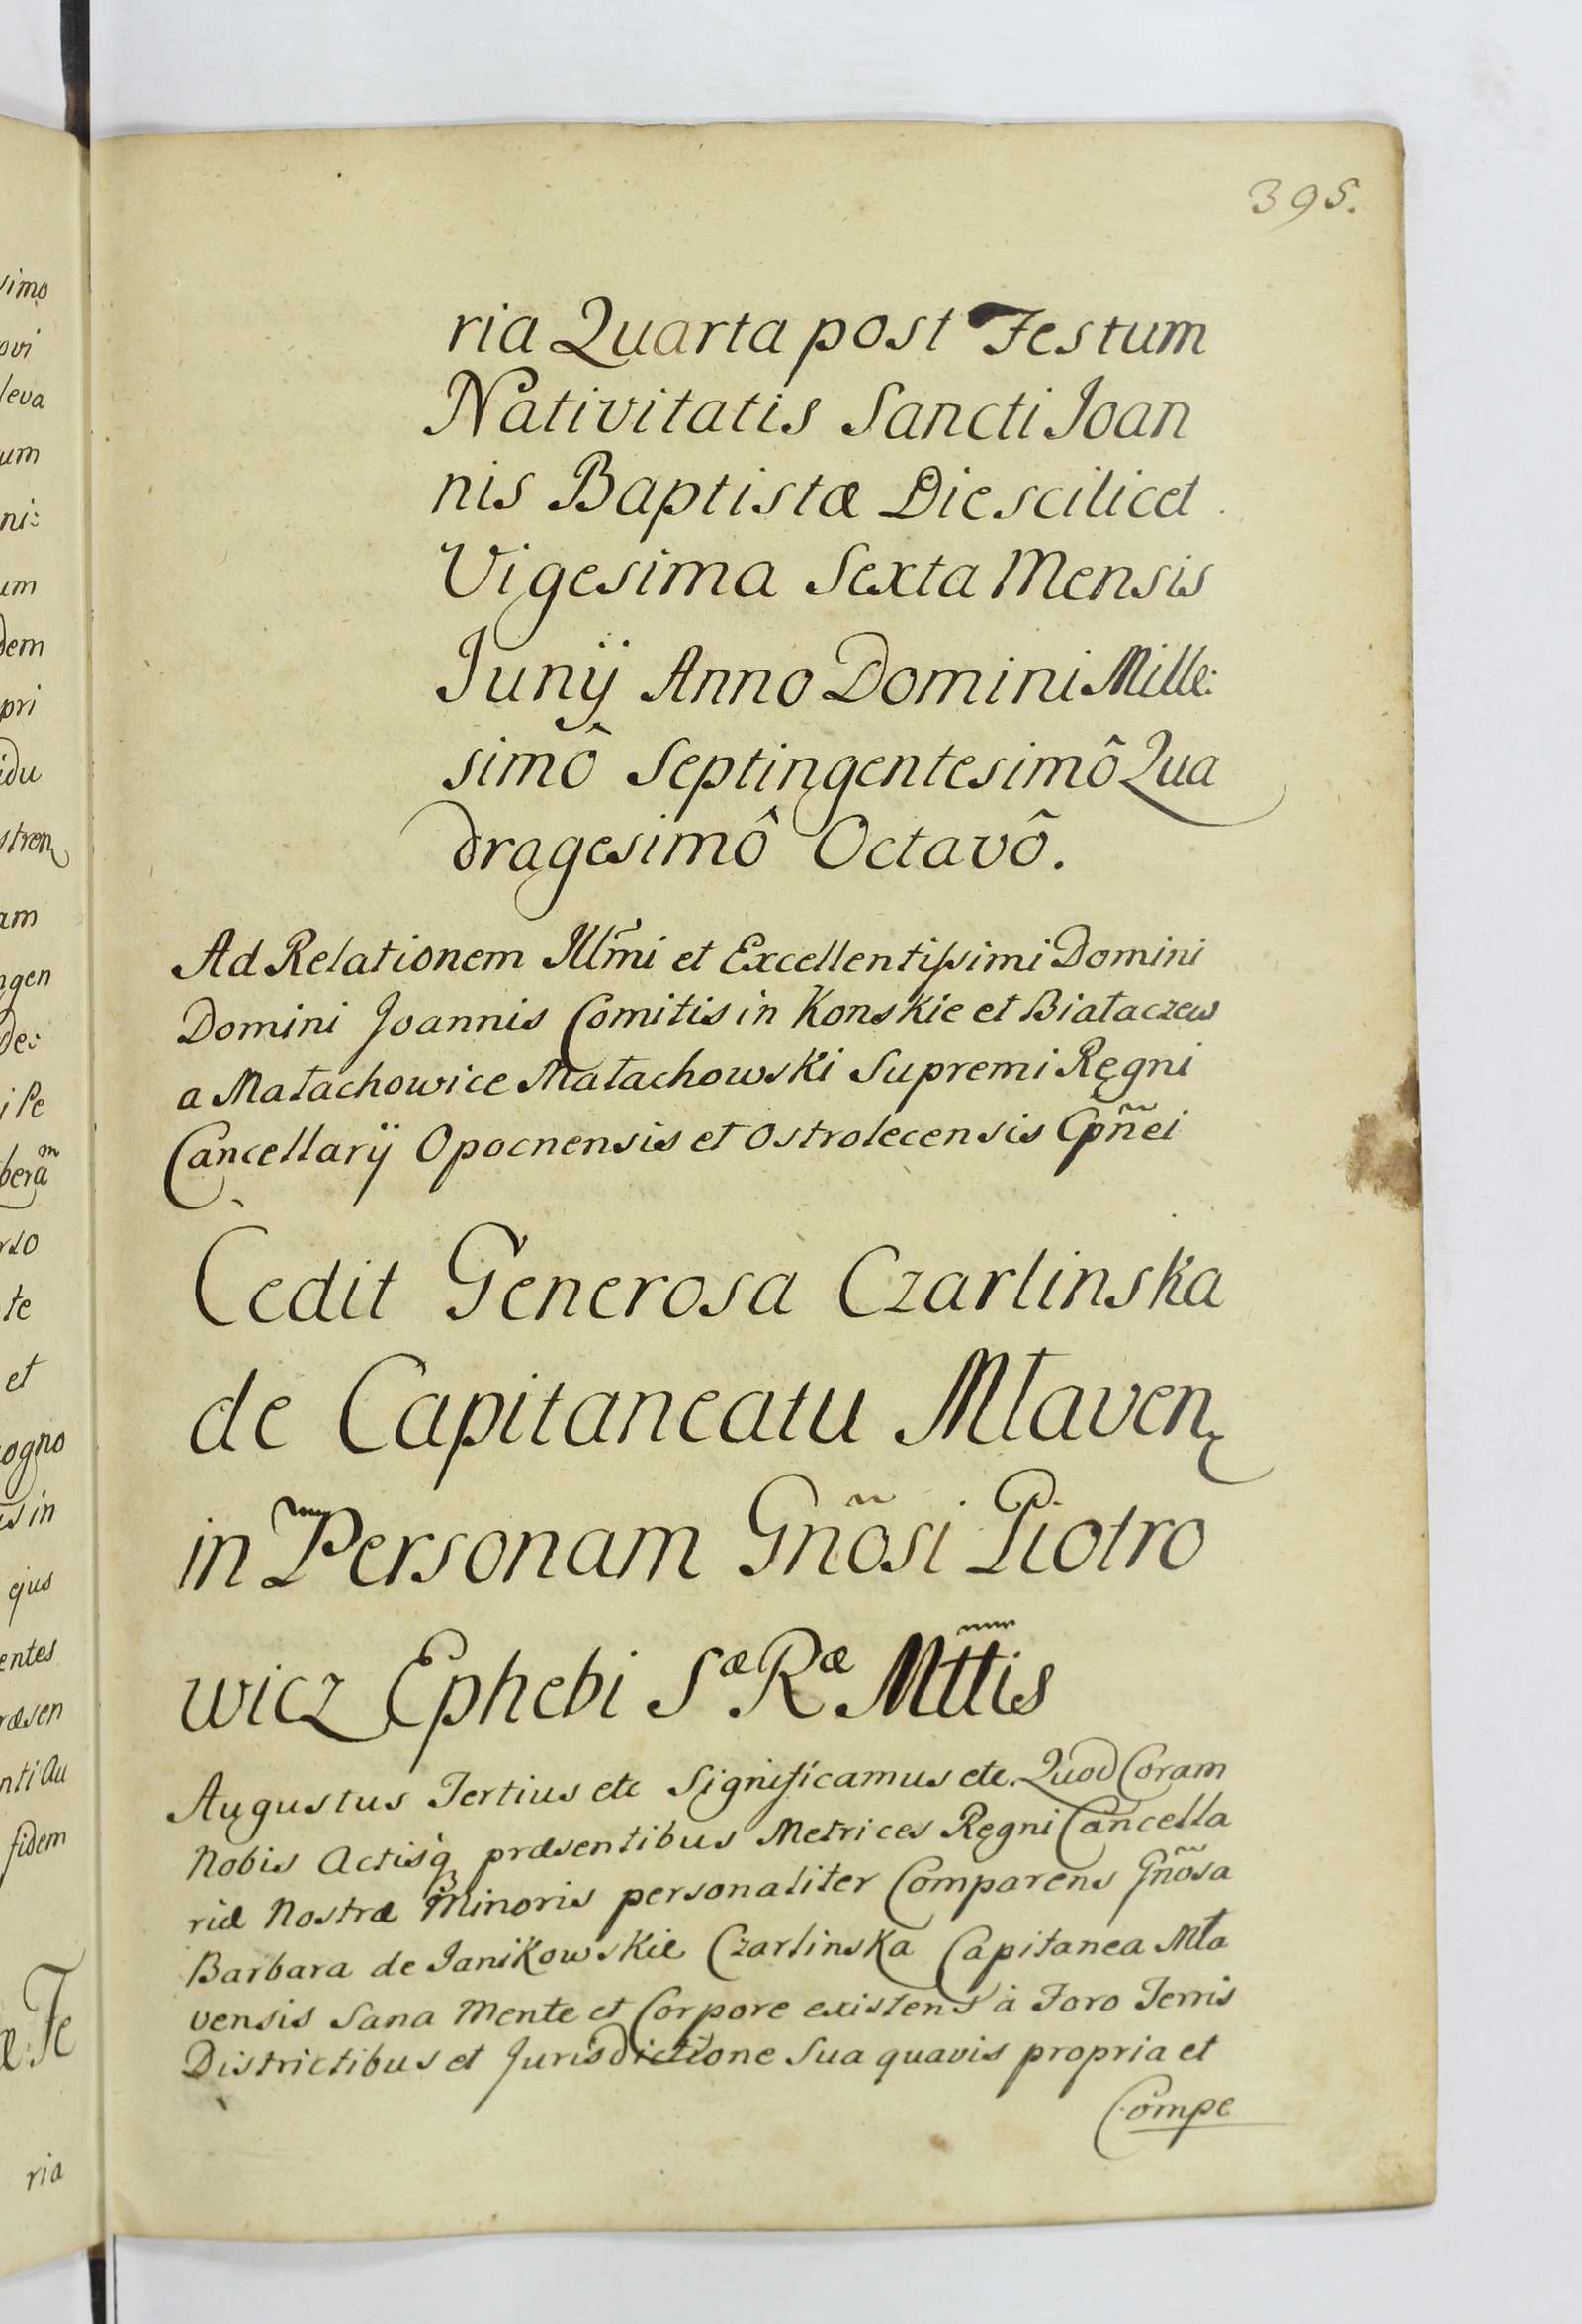 simo
ovi
leva
um
ni:
um
dem
pri
idu
am
ngen
de:
i Pe
beraᵐ
rso
te
et
cogno
in
ejus
entes
ræsen
nti au
fidem
æ Fe
ria
395.
ria Quarta post Festum
Nativitatis Sancti Joan
nis Baptistæ Die scilicet
Vigesima Sexta Mensis
Junÿ Anno Domini Mille:
simô Septingentesimô Qua
dragesimô Octavô.
Ad Relationem Illm̃i et Excellentissimi Domini
Domini Joannis Comitis in Konskie et Białaczew
a Małachowice Małachowski Supremi Regni
Cancellarÿ Opocnensis et Ostrolecensis Cpñei
Cedit Generosa Czarlinska
de Capitaneatu Młaven
in Personam Gñosi Piotro
wicz Ephebi Sæ Ræ Mttis
Augustus Tertius etc Significamus etc. Quod Coram
Nobis Actisq præsentibus Metrices Regni Cancella
riæ Nostræ Minoris personaliter Comparens Gñosa
Barbara de Janikowskie Czarlinska Capitanea Mła
vensis Sana Mente et Corpore existens à Foro Terris
Districtibus et Jurisdictione Sua quavis propria et
Compe